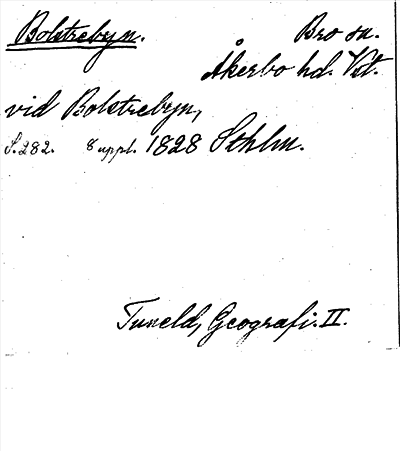 Bolstrebyn. Bro sn.
Åkerbo hd. Vst.
vid Bolstrebyn,
S. 282. 8 uppl. 1828 Sthlm.
Tuneld, Geografi. II.